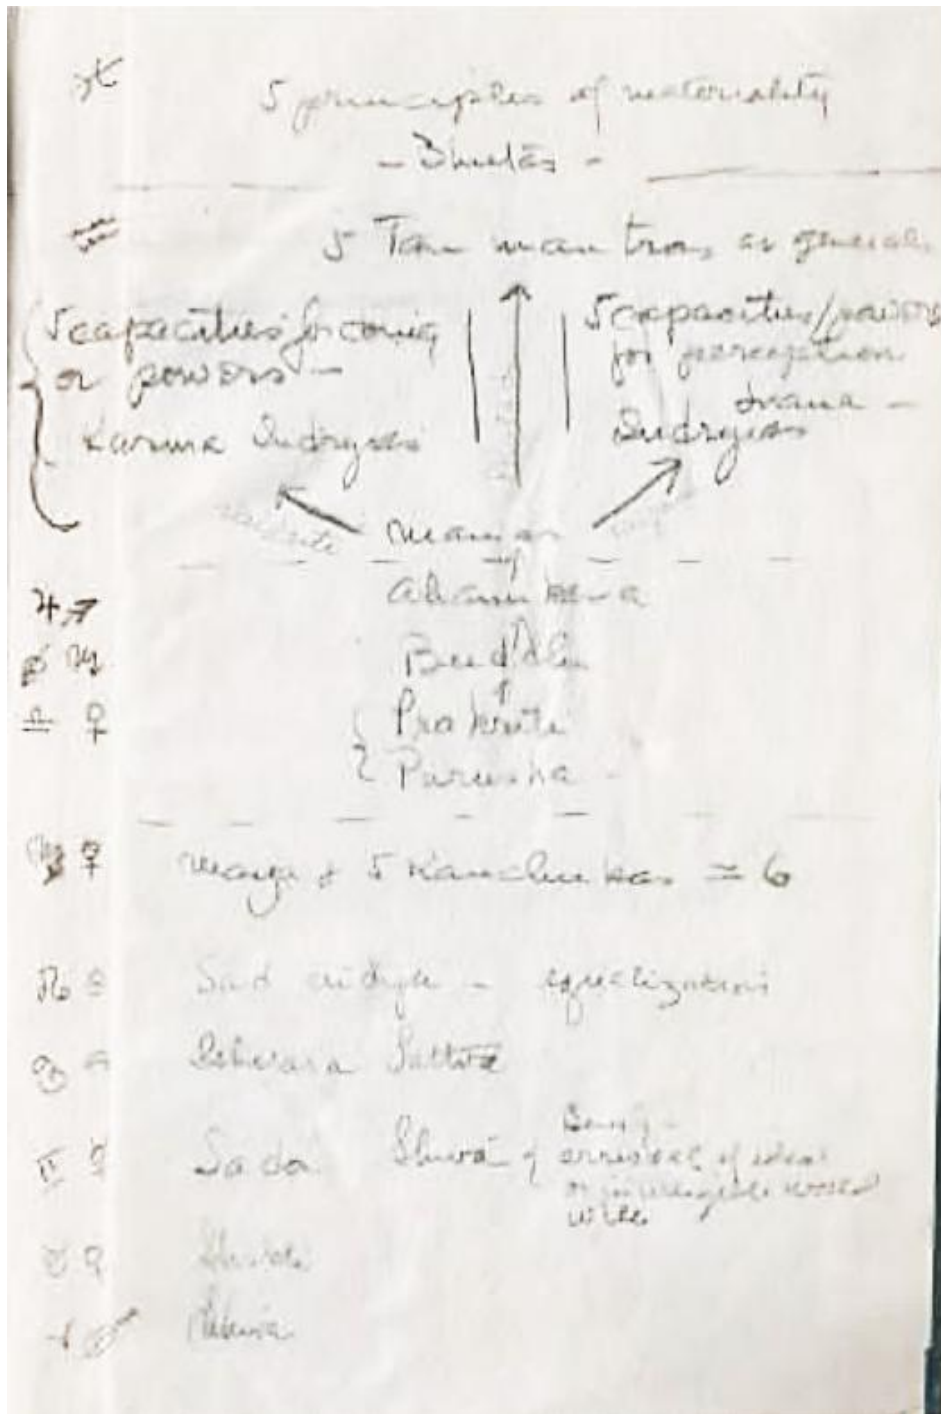 ♓ 5 principles of materiality
- Bhutas -
♒ 5 Tan man tras as general
5 capacities for doing
or powers -
Karma Indryas
5 capacities/powers
for perception
Indryas
Manas
♃ ♐ Ahamkara
♏ Buddhi
♎ ♀ Prakriti
Purusha -
♍ ☿ Maya + 5 Kanchukas = 6
♌ Sad vidya - equalization
♋ Ishwara Tattva
♊ ☿ Sada Shiva
of ideal
or intelligible world
will
♉ ♀ Shakti
♈ Shiva